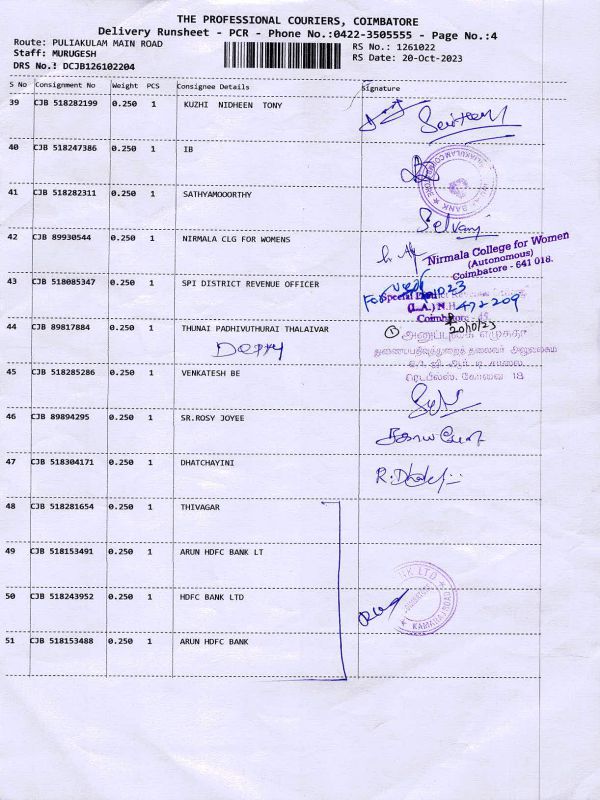 THE PROFESSIONAL COURIERS, COIMBATORE
Delivery Runsheet - PCR - Phone No.:0422-3505555 - Page No.:4
Route: PULIAKULAM MAIN ROAD
Staff: MURUGESH
DRS No.: DCJB126102204
RS No.: 1261022
RS Date: 20-Oct-2023
S No Consignment No Weight PCS Consignee Details Signature
39 CJB 518282199 0.250 1 KUZHI NIDHEEN TONY
40 CJB 518247386 0.250 1 IB
41 CJB 518282311 0.250 1 SATHYAMOOORTHY
Selvam
42 CJB 89930544 0.250 1 NIRMALA CLG FOR WOMENS
Nirmala College for Women
(Autonomous)
Coimbatore - 641 018.
43 CJB 518085347 0.250 1 SPI DISTRICT REVENUE OFFICER
(L.A.) N.H. 47 209
Coimbatore
44 CJB 89817884 0.250 1 THUNAI PADHIVUTHURAI THALAIVAR
20/10/23
துணைப்பதிவுத்துறைத் தலைவர் அலுவலகம்
கோவை 18
45 CJB 518285286 0.250 1 VENKATESH BE
46 CJB 89894295 0.250 1 SR.ROSY JOYEE
47 CJB 518304171 0.250 1 DHATCHAYINI
48 CJB 518281654 0.250 1 THIVAGAR
49 CJB 518153491 0.250 1 ARUN HDFC BANK LT
50 CJB 518243952 0.250 1 HDFC BANK LTD
51 CJB 518153488 0.250 1 ARUN HDFC BANK